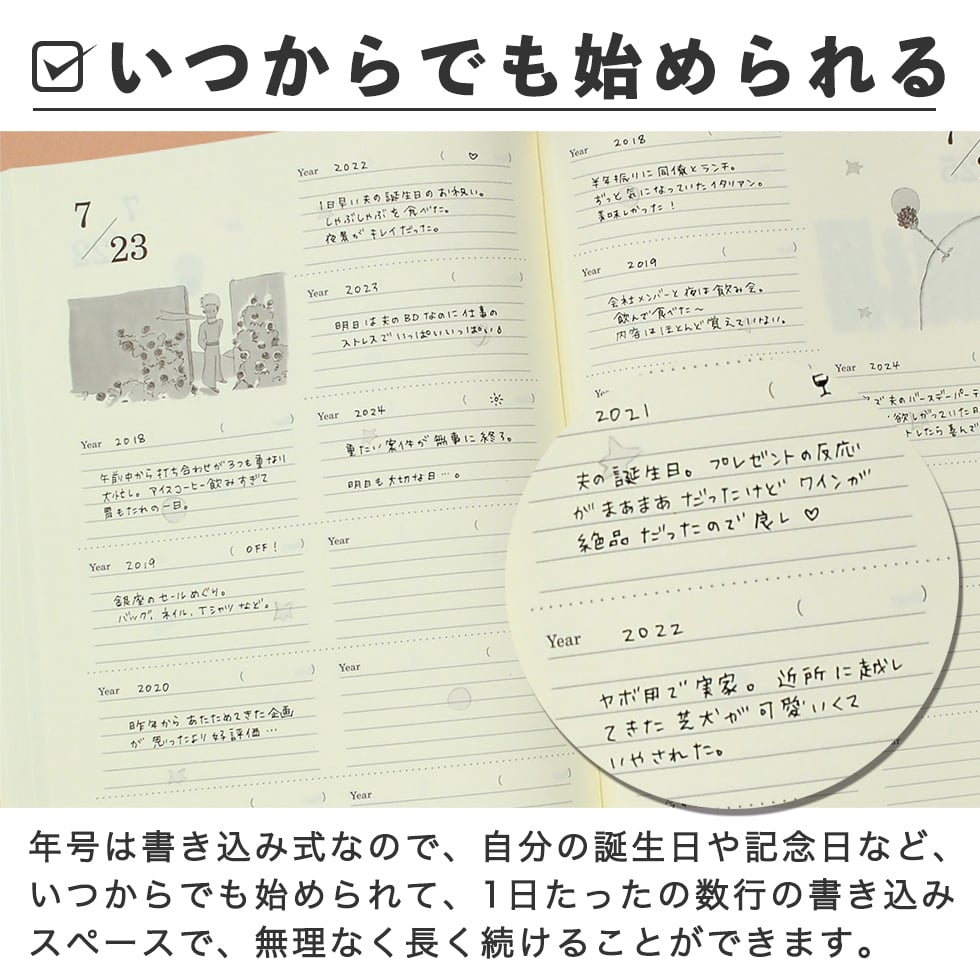 いつからでも始められる
7/23
Year 2018 ( )
午前中から打ち合わせが3つも重なり
大忙し。アイスコーヒー飲みすぎて
胃もたれの一日。
Year 2019 ( OFF! )
銀座のセールめぐり。
バッグ、ネイル、Tシャツなど。
Year 2020 ( )
昨年からあたためてきた企画
が思ったより好評価…
Year 2022 ( ♡ )
1日早い夫の誕生日のお祝い。
しゃぶしゃぶを食べた。
夜景がキレイだった。
Year 2023 ( )
明日は夫のBDなのに仕事の
ストレスでいっぱいいっぱい
Year 2024 ( )
重たい案件が無事に終了。
明日も大切な日…。
Year ( )
Year ( )
Year ( )
Year 2018
半年振りに同僚とランチ。
ずっと気になっていたイタリアン。
美味しかった!
Year 2019 ( )
会社メンバーと夜は飲み会。
飲んで食べた〜
内容はほとんど覚えていない。
2021 ( )
夫の誕生日。プレゼントの反応
がまあまあだったけどワインが
絶品だったので良し♡
Year 2022 ( )
ヤボ用で実家。近所に越し
てきた芝犬が可愛いくて
いやされた。
Year 2024 (
で夫のバースデーパーテ
飲しがっていた
トしたら喜んで
年号は書き込み式なので、自分の誕生日や記念日など、
いつからでも始められて、1日たったの数行の書き込み
スペースで、無理なく長く続けることができます。